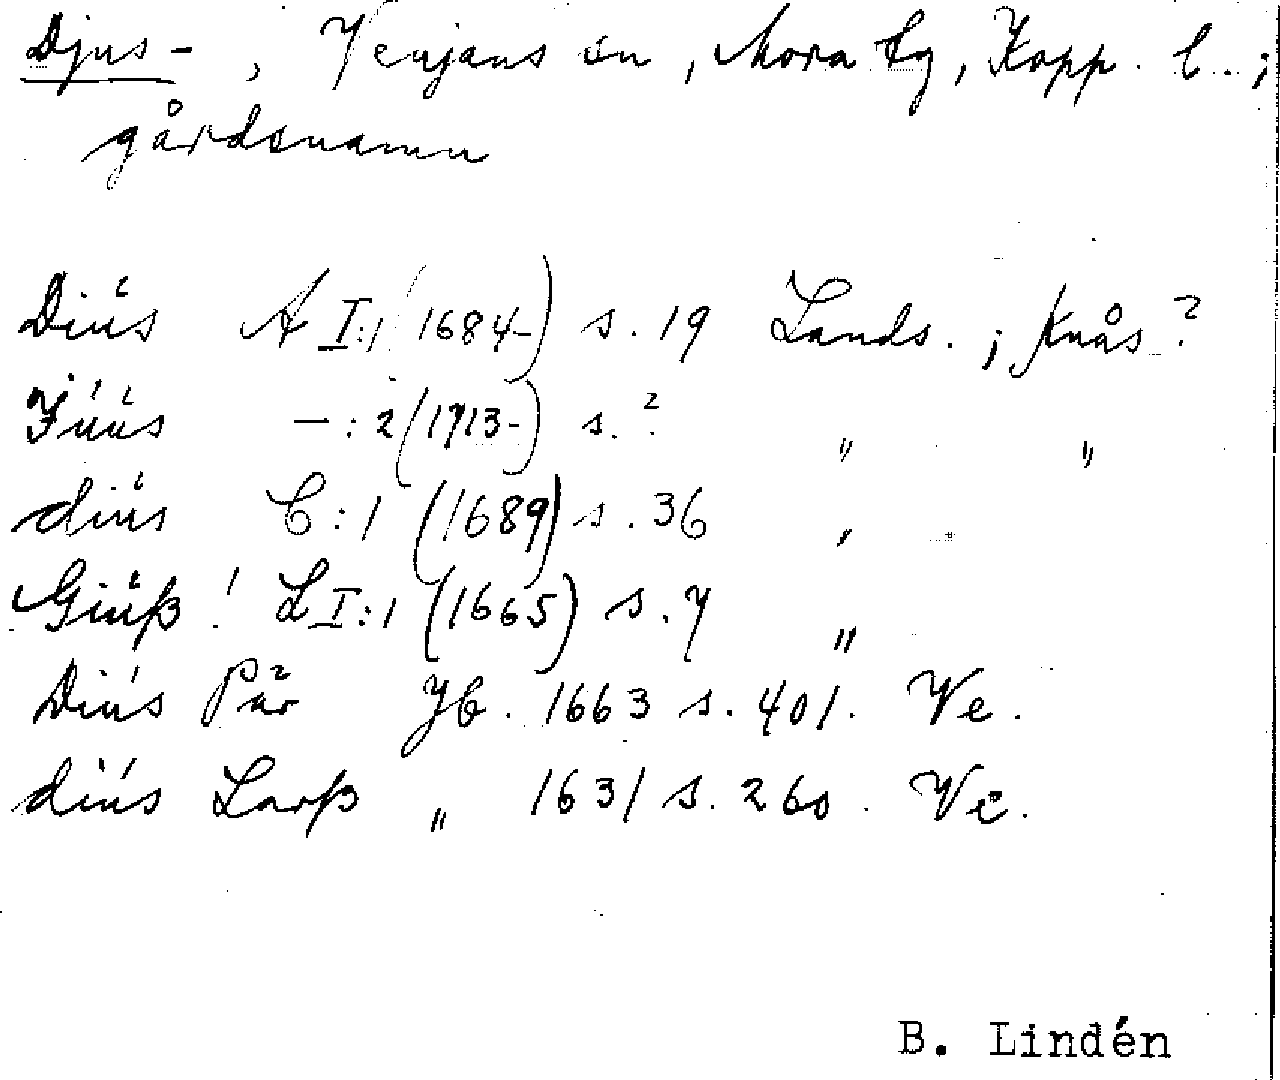 Djus-, Venjans sn, Mora tg, Kopp. l.;
gårdsnamn
Diús A I:1 (1684-) s. 19 Lands.; Knås?
Júús —:2 (1713-) s.? " "
diús C:1 (1689) s. 36 "
Giúß! L I:1 (1665) s. 7 "
Diús Pär Jb. 1663 s. 401. Ve.
diús Larß " 1631 s. 260. Ve.
B. Lindén